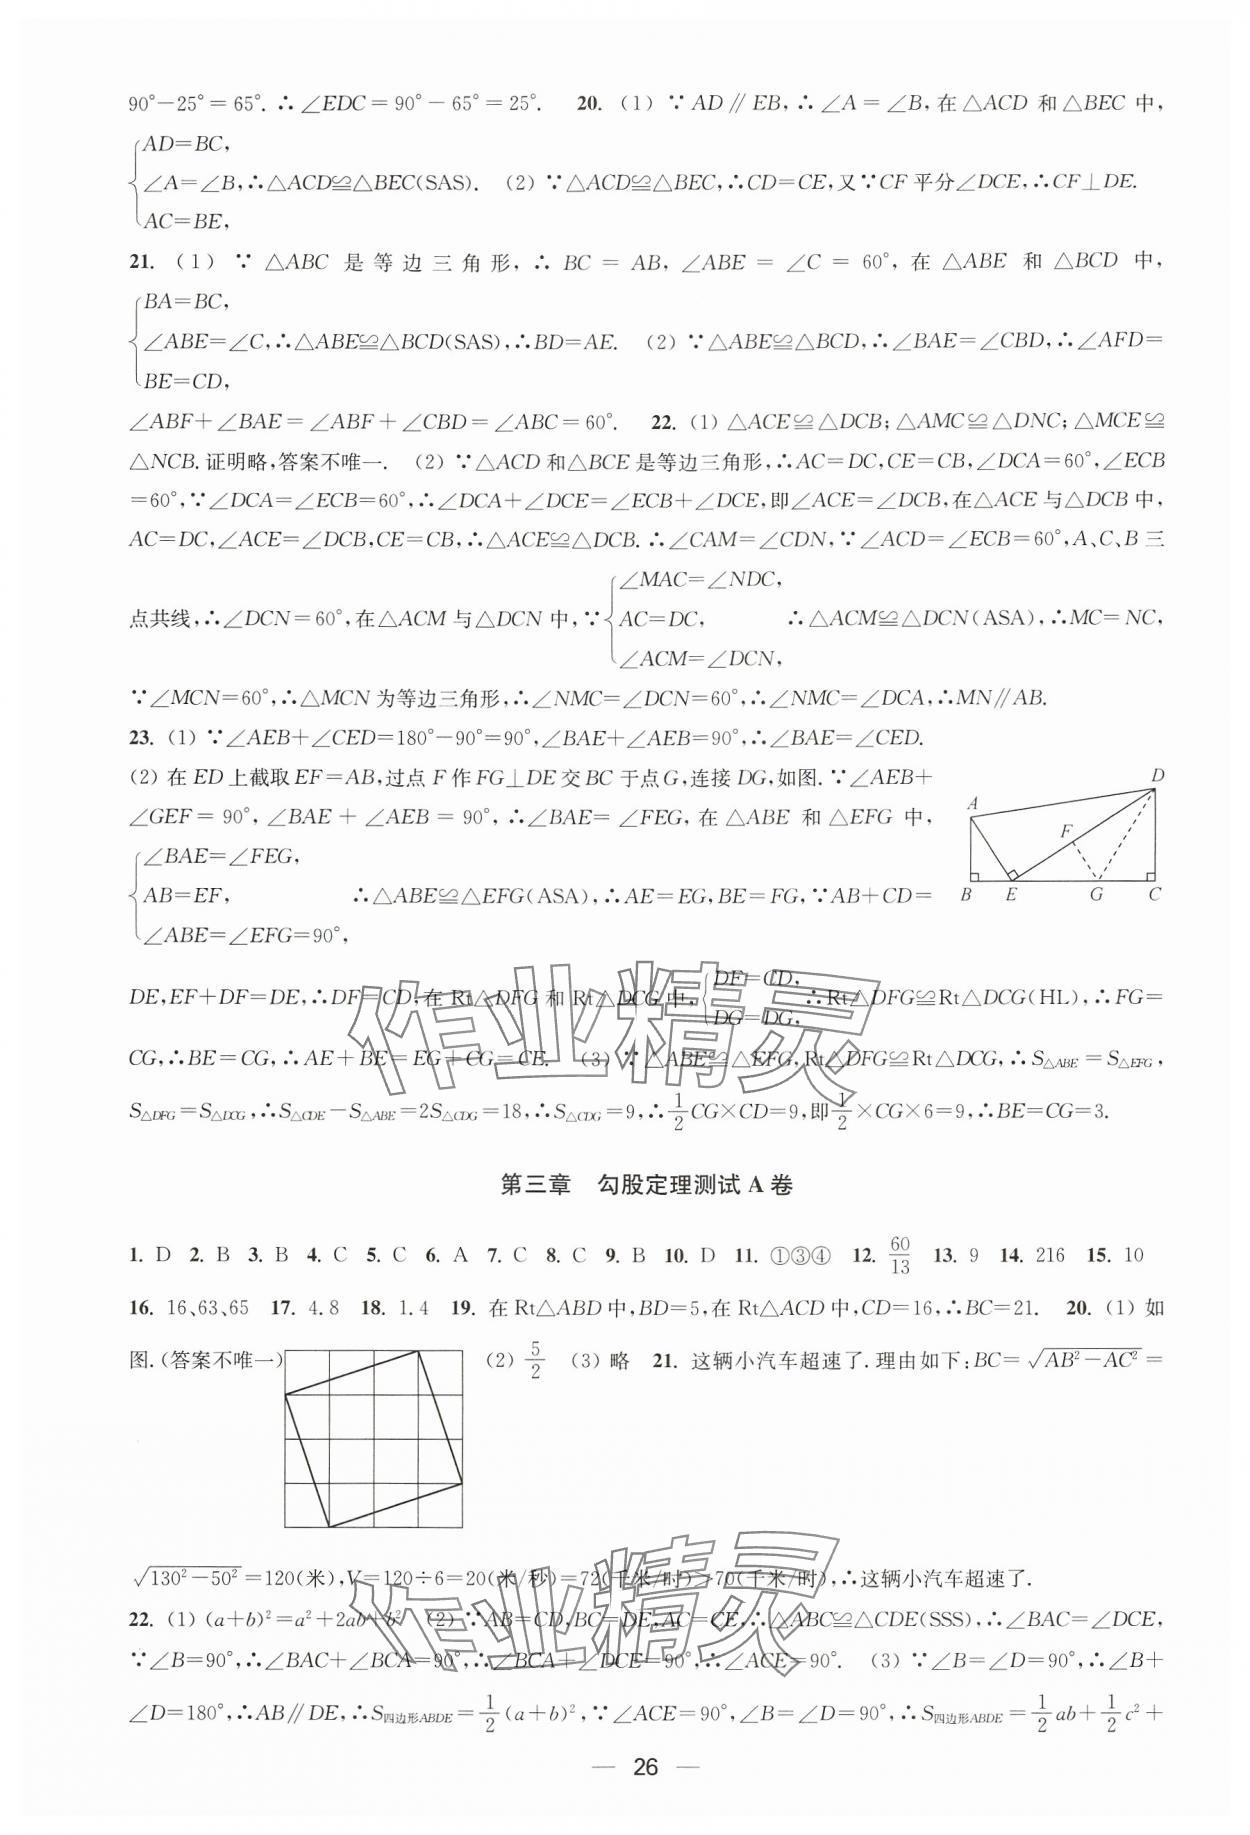 90°－25°＝65°. ∴∠EDC＝90°－65°＝25°. 20. (1) ∵AD∥EB, ∴∠A＝∠B, 在△ACD 和△BEC 中,
AD＝BC,
∠A＝∠B, ∴△ACD≌△BEC(SAS). (2) ∵△ACD≌△BEC, ∴CD＝CE, 又∵CF 平分∠DCE, ∴CF⊥DE.
AC＝BE,
21. (1) ∵△ABC 是等边三角形, ∴BC＝AB, ∠ABE＝∠C＝60°, 在△ABE 和△BCD 中,
BA＝BC,
∠ABE＝∠C, ∴△ABE≌△BCD(SAS), ∴BD＝AE. (2) ∵△ABE≌△BCD, ∴∠BAE＝∠CBD, ∴∠AFD＝
BE＝CD,
∠ABF＋∠BAE＝∠ABF＋∠CBD＝∠ABC＝60°. 22. (1) △ACE≌△DCB; △AMC≌△DNC; △MCE≌
△NCB. 证明略, 答案不唯一. (2) ∵△ACD 和△BCE 是等边三角形, ∴AC＝DC, CE＝CB, ∠DCA＝60°, ∠ECB
＝60°, ∵∠DCA＝∠ECB＝60°, ∴∠DCA＋∠DCE＝∠ECB＋∠DCE, 即∠ACE＝∠DCB, 在△ACE 与△DCB 中,
AC＝DC, ∠ACE＝∠DCB, CE＝CB, ∴△ACE≌△DCB. ∴∠CAM＝∠CDN, ∵∠ACD＝∠ECB＝60°, A、C、B 三
∠MAC＝∠NDC,
点共线, ∴∠DCN＝60°, 在△ACM 与△DCN 中, ∵ AC＝DC, ∴△ACM≌△DCN(ASA), ∴MC＝NC,
∠ACM＝∠DCN,
∵∠MCN＝60°, ∴△MCN 为等边三角形, ∴∠NMC＝∠DCN＝60°, ∴∠NMC＝∠DCA, ∴MN∥AB.
23. (1) ∵∠AEB＋∠CED＝180°－90°＝90°, ∠BAE＋∠AEB＝90°, ∴∠BAE＝∠CED.
(2) 在 ED 上截取 EF＝AB, 过点 F 作 FG⊥DE 交 BC 于点 G, 连接 DG, 如图. ∵∠AEB＋
∠GEF＝90°, ∠BAE＋∠AEB＝90°, ∴∠BAE＝∠FEG, 在△ABE 和△EFG 中,
∠BAE＝∠FEG,
AB＝EF, ∴△ABE≌△EFG(ASA), ∴AE＝EG, BE＝FG, ∵AB＋CD＝
∠ABE＝∠EFG＝90°,
D
A
F
B E G C
DE, EF＋DF＝DE, ∴DF＝CD, 在 Rt△DFG 和 Rt△DCG 中, DF＝CD, DG＝DG, ∴Rt△DFG≌Rt△DCG(HL), ∴FG＝
CG, ∴BE＝CG, ∴AE＋BE＝EG＋CG＝CE. (3) ∵△ABE≌△EFG, Rt△DFG≌Rt△DCG, ∴S△ABE＝S△EFG,
S△DFG＝S△DCG, ∴S△CDE－S△ABE＝2S△CDG＝18, ∴S△CDG＝9, ∴1/2 CG×CD＝9, 即1/2×CG×6＝9, ∴BE＝CG＝3.
第三章 勾股定理测试 A 卷
1. D 2. B 3. B 4. C 5. C 6. A 7. C 8. C 9. B 10. D 11. ①③④ 12. 60/13 13. 9 14. 216 15. 10
16. 16、63、65 17. 4.8 18. 1.4 19. 在 Rt△ABD 中, BD＝5, 在 Rt△ACD 中, CD＝16, ∴BC＝21. 20. (1) 如
图. (答案不唯一) (2) 5/2 (3) 略 21. 这辆小汽车超速了. 理由如下: BC＝√(AB²－AC²)＝
√(130²－50²)＝120(米), V＝120÷6＝20(米/秒)＝72(千米/时)＞70(千米/时), ∴这辆小汽车超速了.
22. (1) (a＋b)²＝a²＋2ab＋b² (2) ∵AB＝CD, BC＝DE, AC＝CE, ∴△ABC≌△CDE(SSS), ∴∠BAC＝∠DCE,
∵∠B＝90°, ∴∠BAC＋∠BCA＝90°, ∴∠BCA＋∠DCE＝90°, ∴∠ACE＝90°. (3) ∵∠B＝∠D＝90°, ∴∠B＋
∠D＝180°, ∴AB∥DE, ∴S四边形ABDE＝1/2(a＋b)², ∵∠ACE＝90°, ∠B＝∠D＝90°, ∴S四边形ABDE＝1/2ab＋1/2c²＋
— 26 —
作业精灵
作业精灵